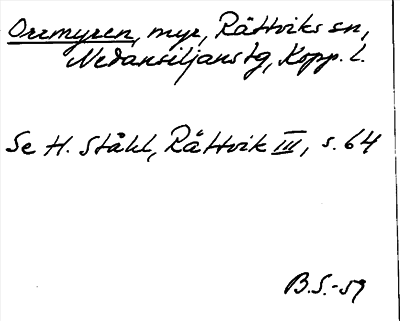 Orrmyren, myr, Rättviks sn,
Nedansiljans tg, Kopp. l.
Se H. Ståhl, Rättvik III, s. 64
B.S.-59